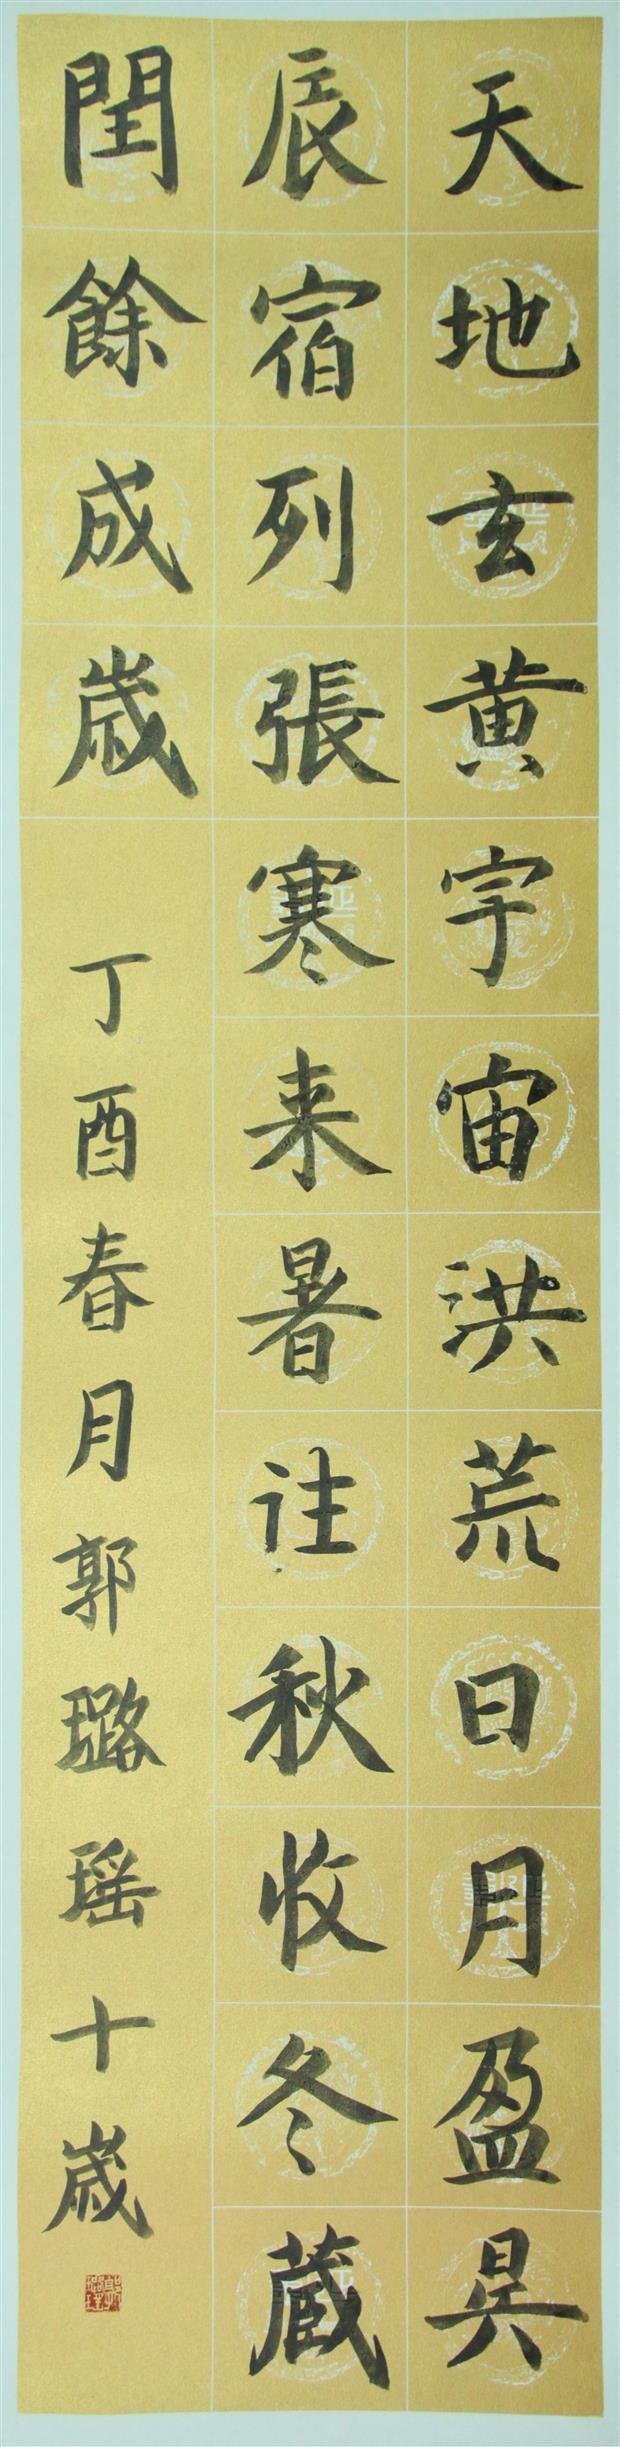 天地玄黄宇宙洪荒日月盈昃
辰宿列張寒来暑往秋收冬蔵
閏餘成歲
丁酉春月郭璐瑶十歲